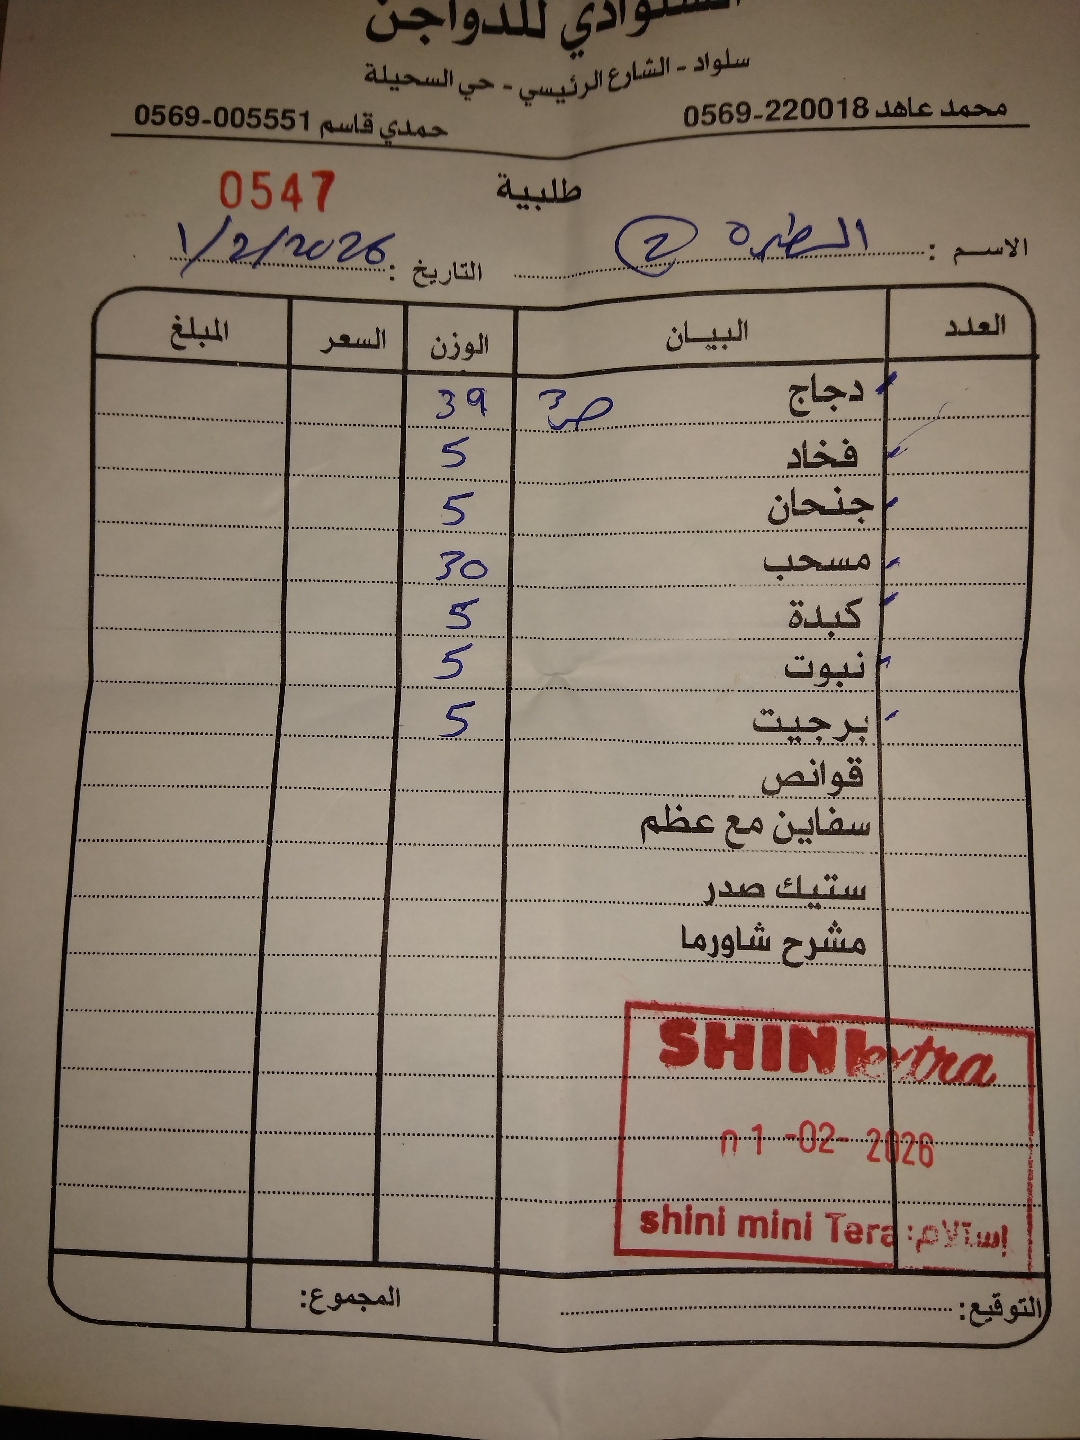 السلوادي للدواجن
سلواد - الشارع الرئيسي - حي السحيلة
محمد عاهد 0569-220018 حمدي قاسم 0569-005551
طلبية 0547
الاسم : الطيره 2 التاريخ : ١/2/2026
العدد البيــان الوزن السعر المبلغ
دجاج 39
فخاد 5
جنحان 5
مسحب 30
كبدة 5
نبوت 5
برجيت 5
قوانص
سفاين مع عظم
ستيك صدر
مشرح شاورما
SHINI extra
01 -02- 2026
shini mini Tera إستلام:
التوقيع: المجموع: